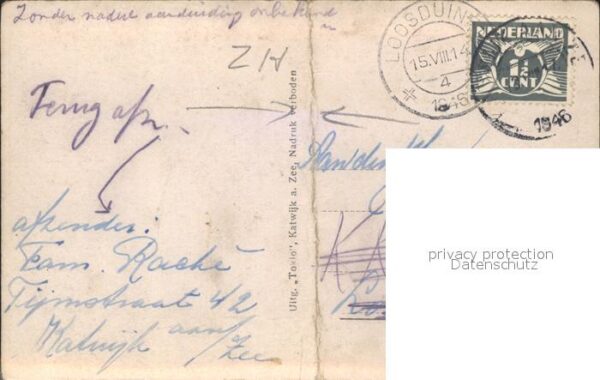 Zonder nadere aanduiding onbekend
ZH
Terug afz.
afzender:
Fam. Raché
Tijmstraat 42
Katwijk aan
Zee
Uitg. „Tovio", Katwijk a. Zee, Nadruk verboden
LOOSDUIN
15.VIII.14
4
1946
NEDERLAND
1½
CENT
1946
Aan de
privacy protection
Datenschutz